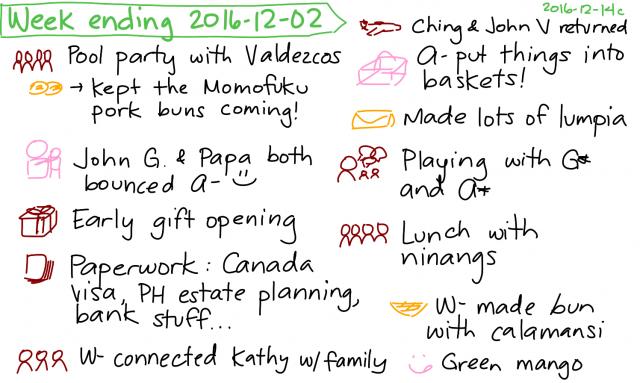 Week ending 2016-12-02
2016-12-14c
Pool party with Valdezcos
→ kept the Momofuku
pork buns coming!
John G. & Papa both
bounced A-
Early gift opening
Paperwork: Canada
visa, PH estate planning,
bank stuff...
W- connected Kathy w/family
Ching & John V returned
A- put things into
baskets!
Made lots of lumpia
Playing with G*
and A*
Lunch with
ninangs
W- made bun
with calamansi
Green mango